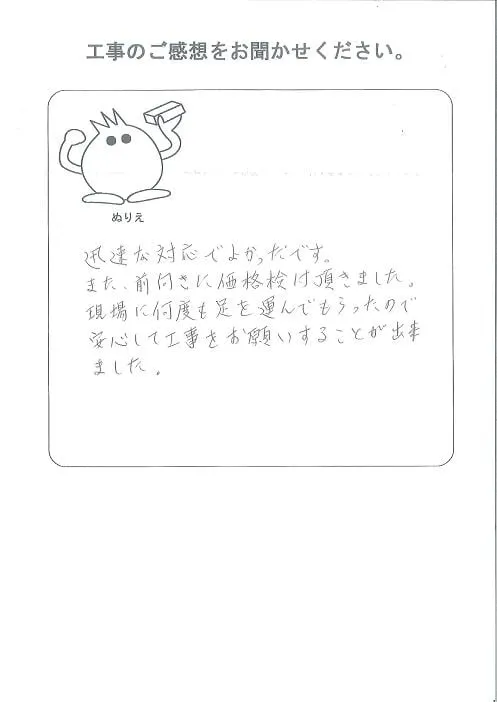 工事のご感想をお聞かせください。
ぬりえ
迅速な対応でよかっだです。
また、前付きに価格検付頂きました。
現場に何度も足を運んでもらったので
安心して工事をお願いすることが出来
ました。